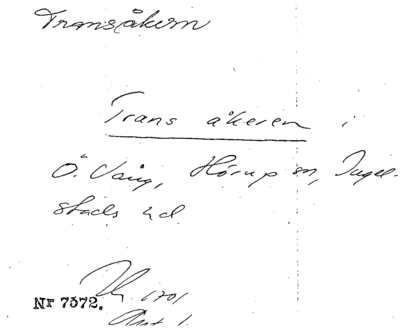 Transåkern
Trans åkeren i
Ö. Vång, Hörup sn, Ingel-
stads hd.
1701
Nr 7572.